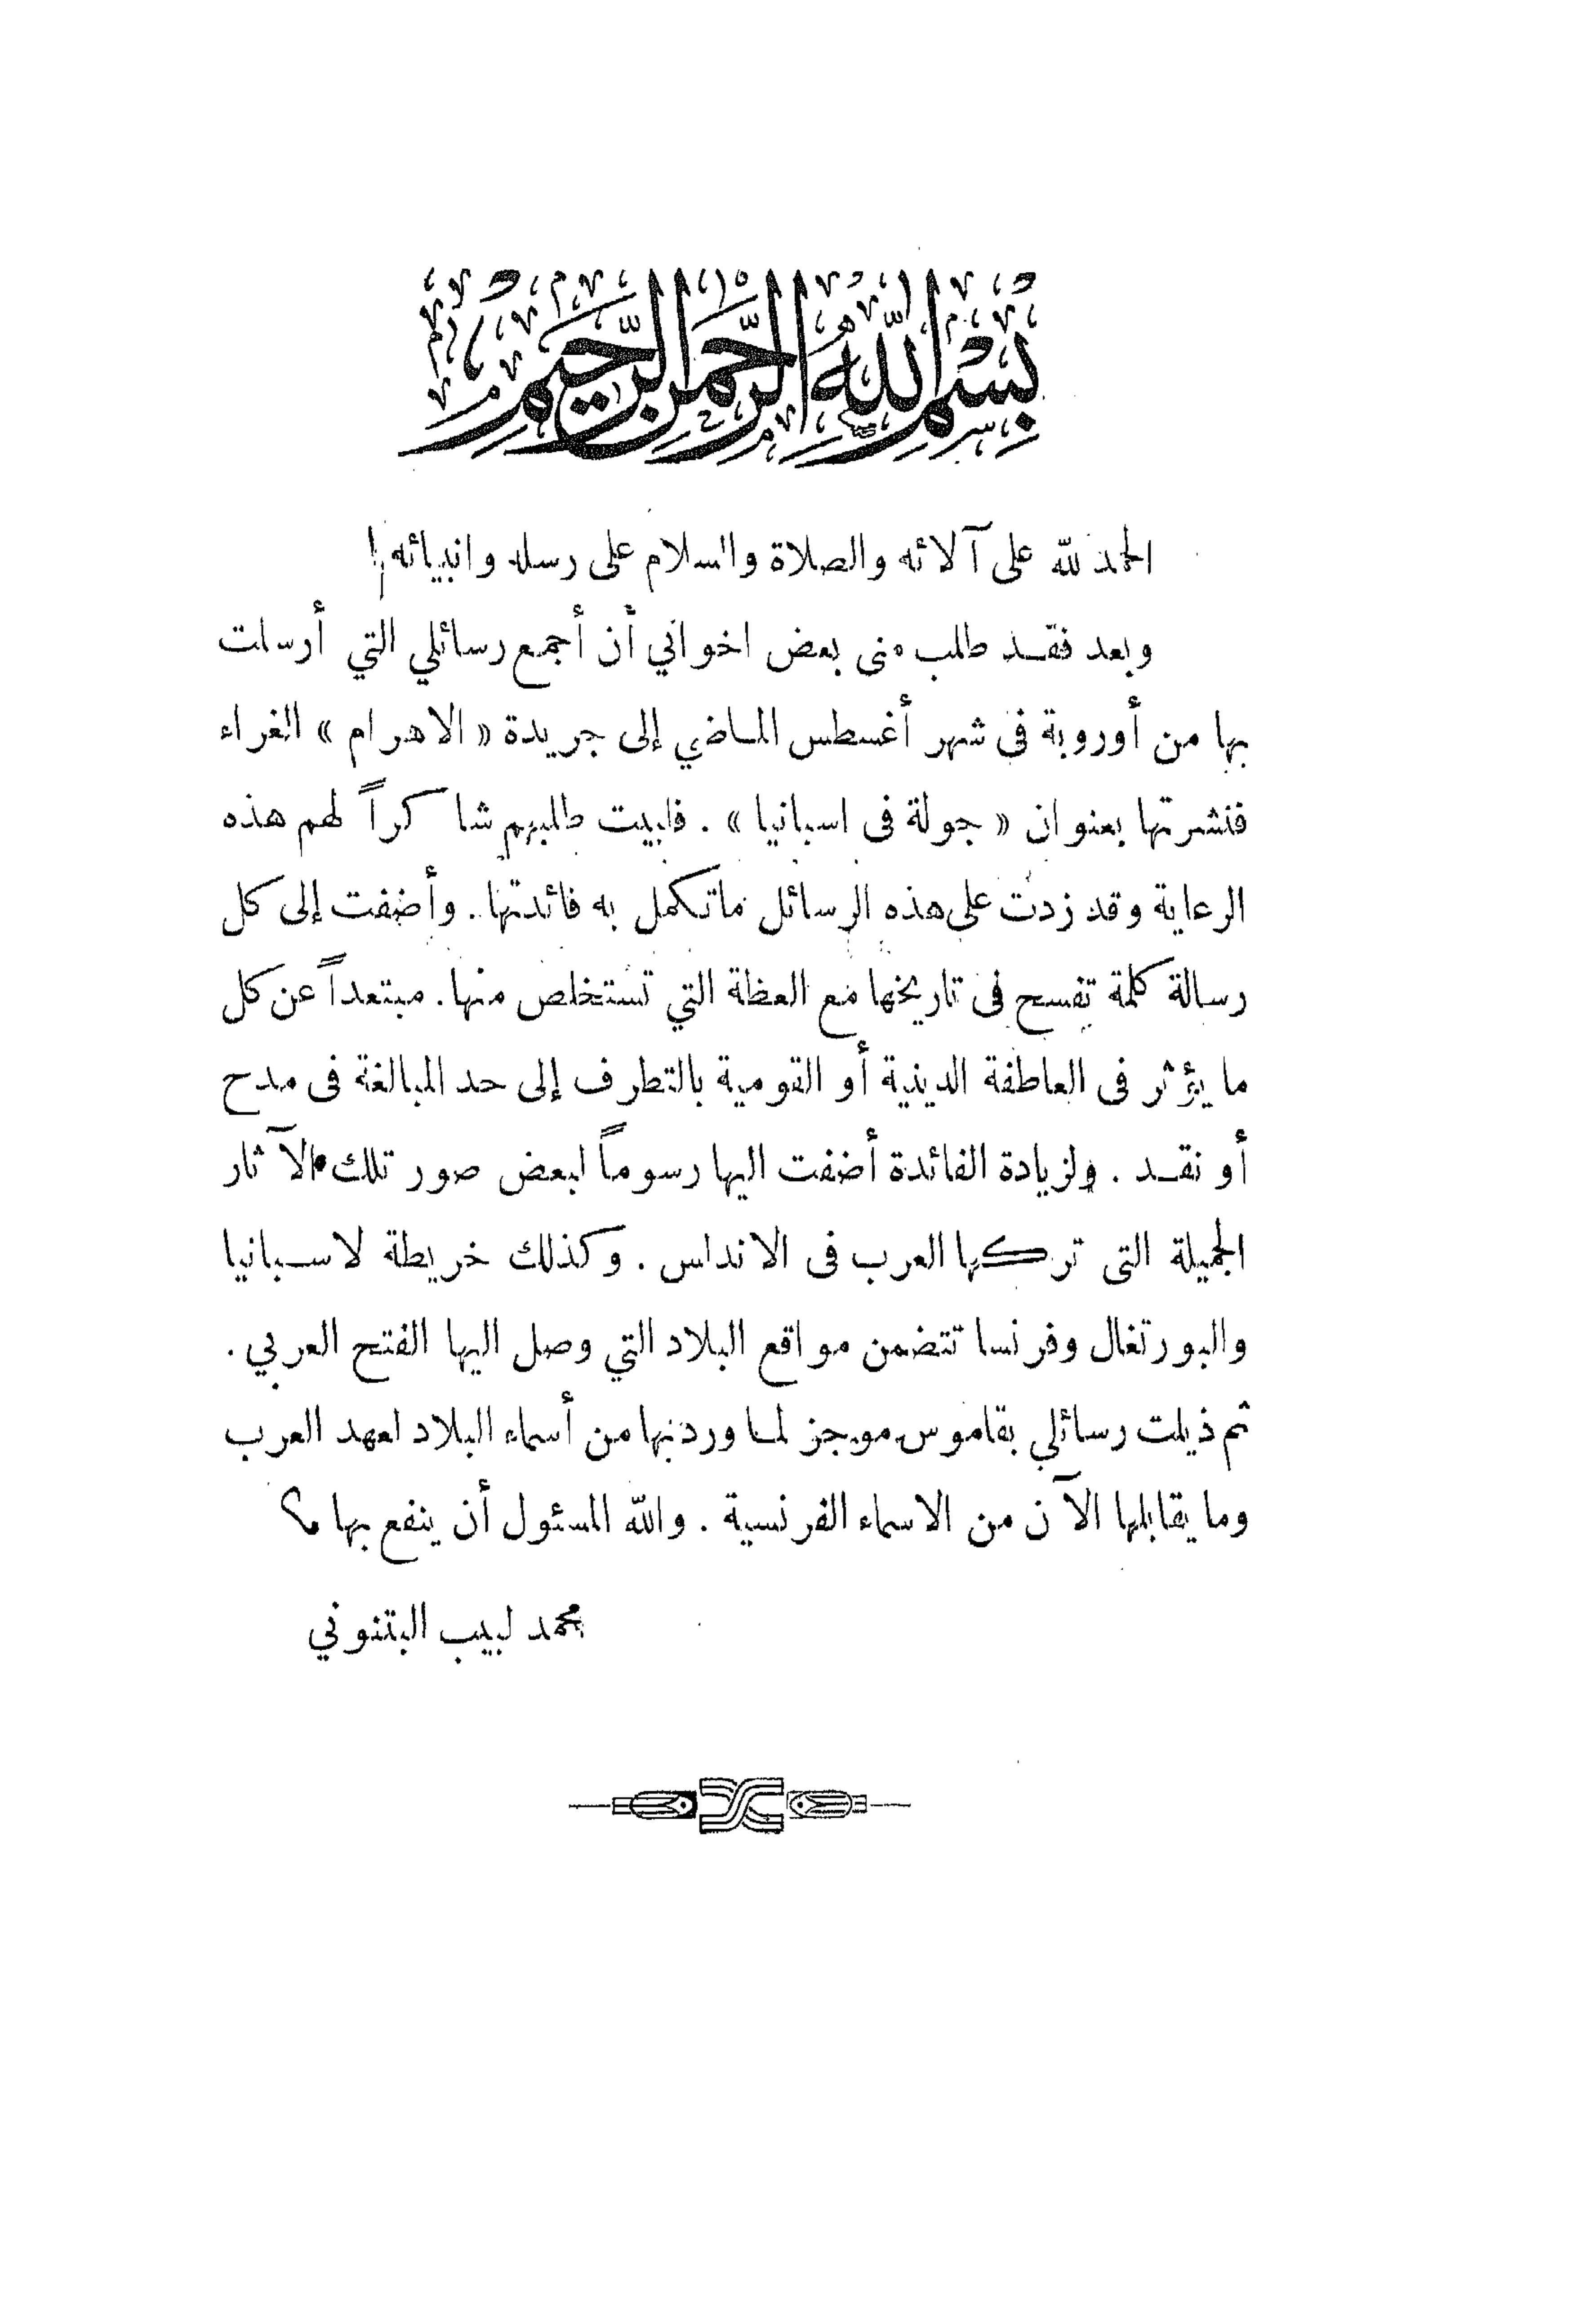 بسم الله الرحمن الرحيم
الحمد لله على آلائه والصلاة والسلام على رسله وانبيائه!
وبعد فقد طلب منى بعض اخواني أن أجمع رسائلي التي أرسلت
بها من أوروبة فى شهر أغسطس الماضي إلى جريدة « الاهرام » الغراء
فنشرتها بعنوان « جولة فى اسبانيا » . فلبيت طلبهم شاكراً لهم هذه
الرعاية وقد زدت على هذه الرسائل ماتكمل به فائدتها . وأضفت إلى كل
رسالة كلمة تفسح فى تاريخها مع العظة التي تستخلص منها . مبتعداً عن كل
ما يؤثر فى العاطفة الدينية أو القومية بالتطرف إلى حد المبالغة فى مدح
أو نقد . ولزيادة الفائدة أضفت اليها رسوماً لبعض صور تلك الآثار
الجميلة التى تركها العرب فى الاندلس . وكذلك خريطة لاسبانيا
والبورتغال وفرنسا تتضمن مواقع البلاد التي وصل اليها الفتح العربي .
ثم ذيلت رسائلي بقاموس موجز لما ورد بها من أسماء البلاد لعهد العرب
وما يقابلها الآن من الاسماء الفرنسية . والله المسئول أن ينفع بها
محمد لبيب البتنوني